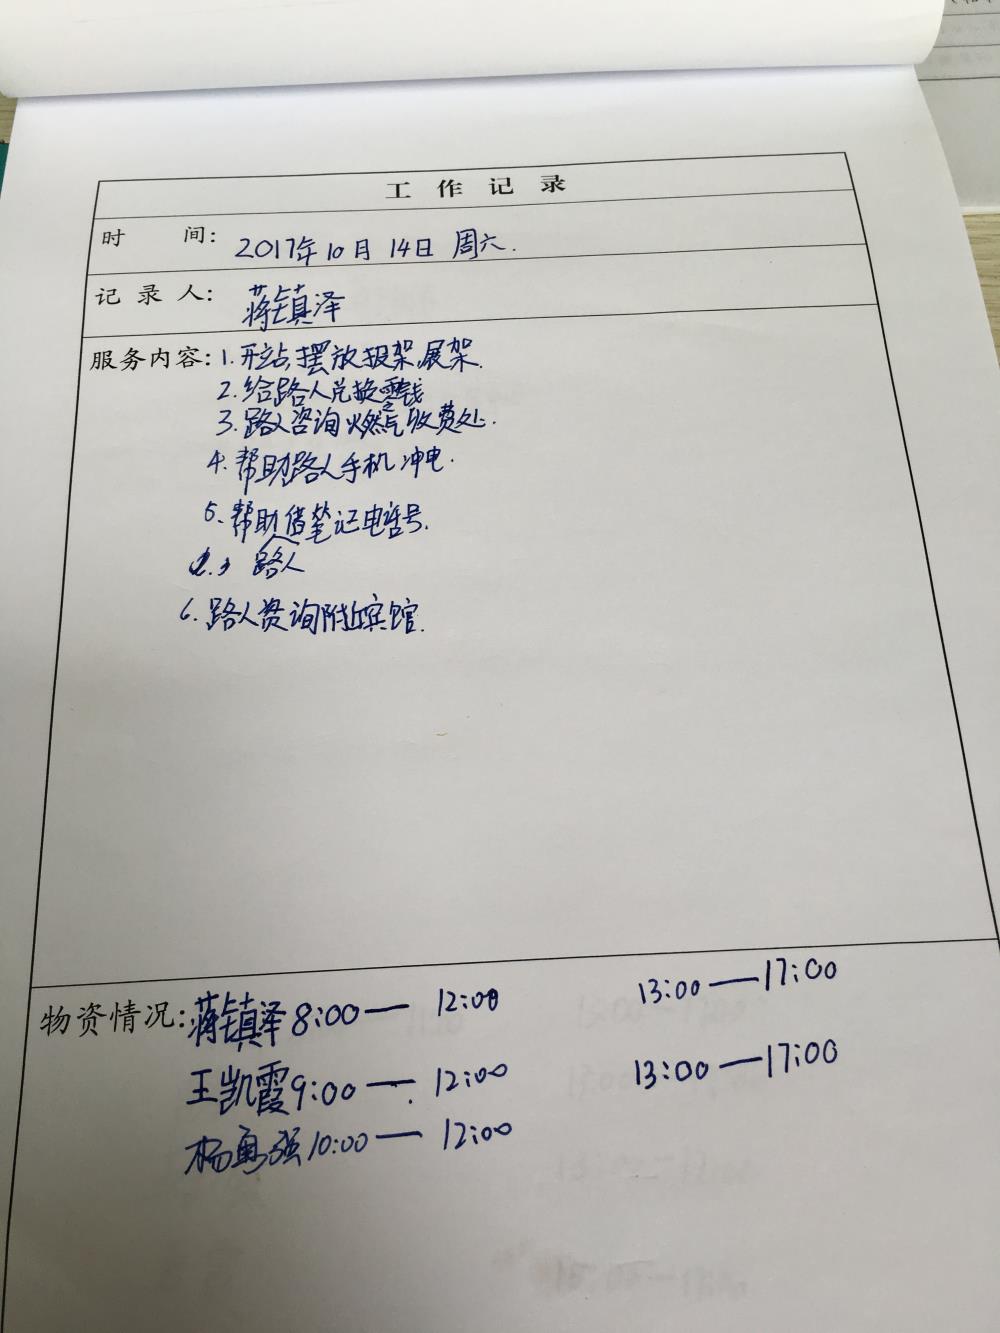 工作记录
时间: 2017年10月14日 周六.
记录人: 蒋镇泽
服务内容: 1.开站,摆放报架,展架.
2.给路人兑换零钱
3.路人咨询燃气收费处.
4.帮助路人手机冲电.
5.帮助借笔记电话号.
路人
6.路人资询附近宾馆.
物资情况: 蒋镇泽 8:00— 12:00 13:00—17:00
王凯霞 9:00— 12:00 13:00—17:00
杨勇强 10:00— 12:00